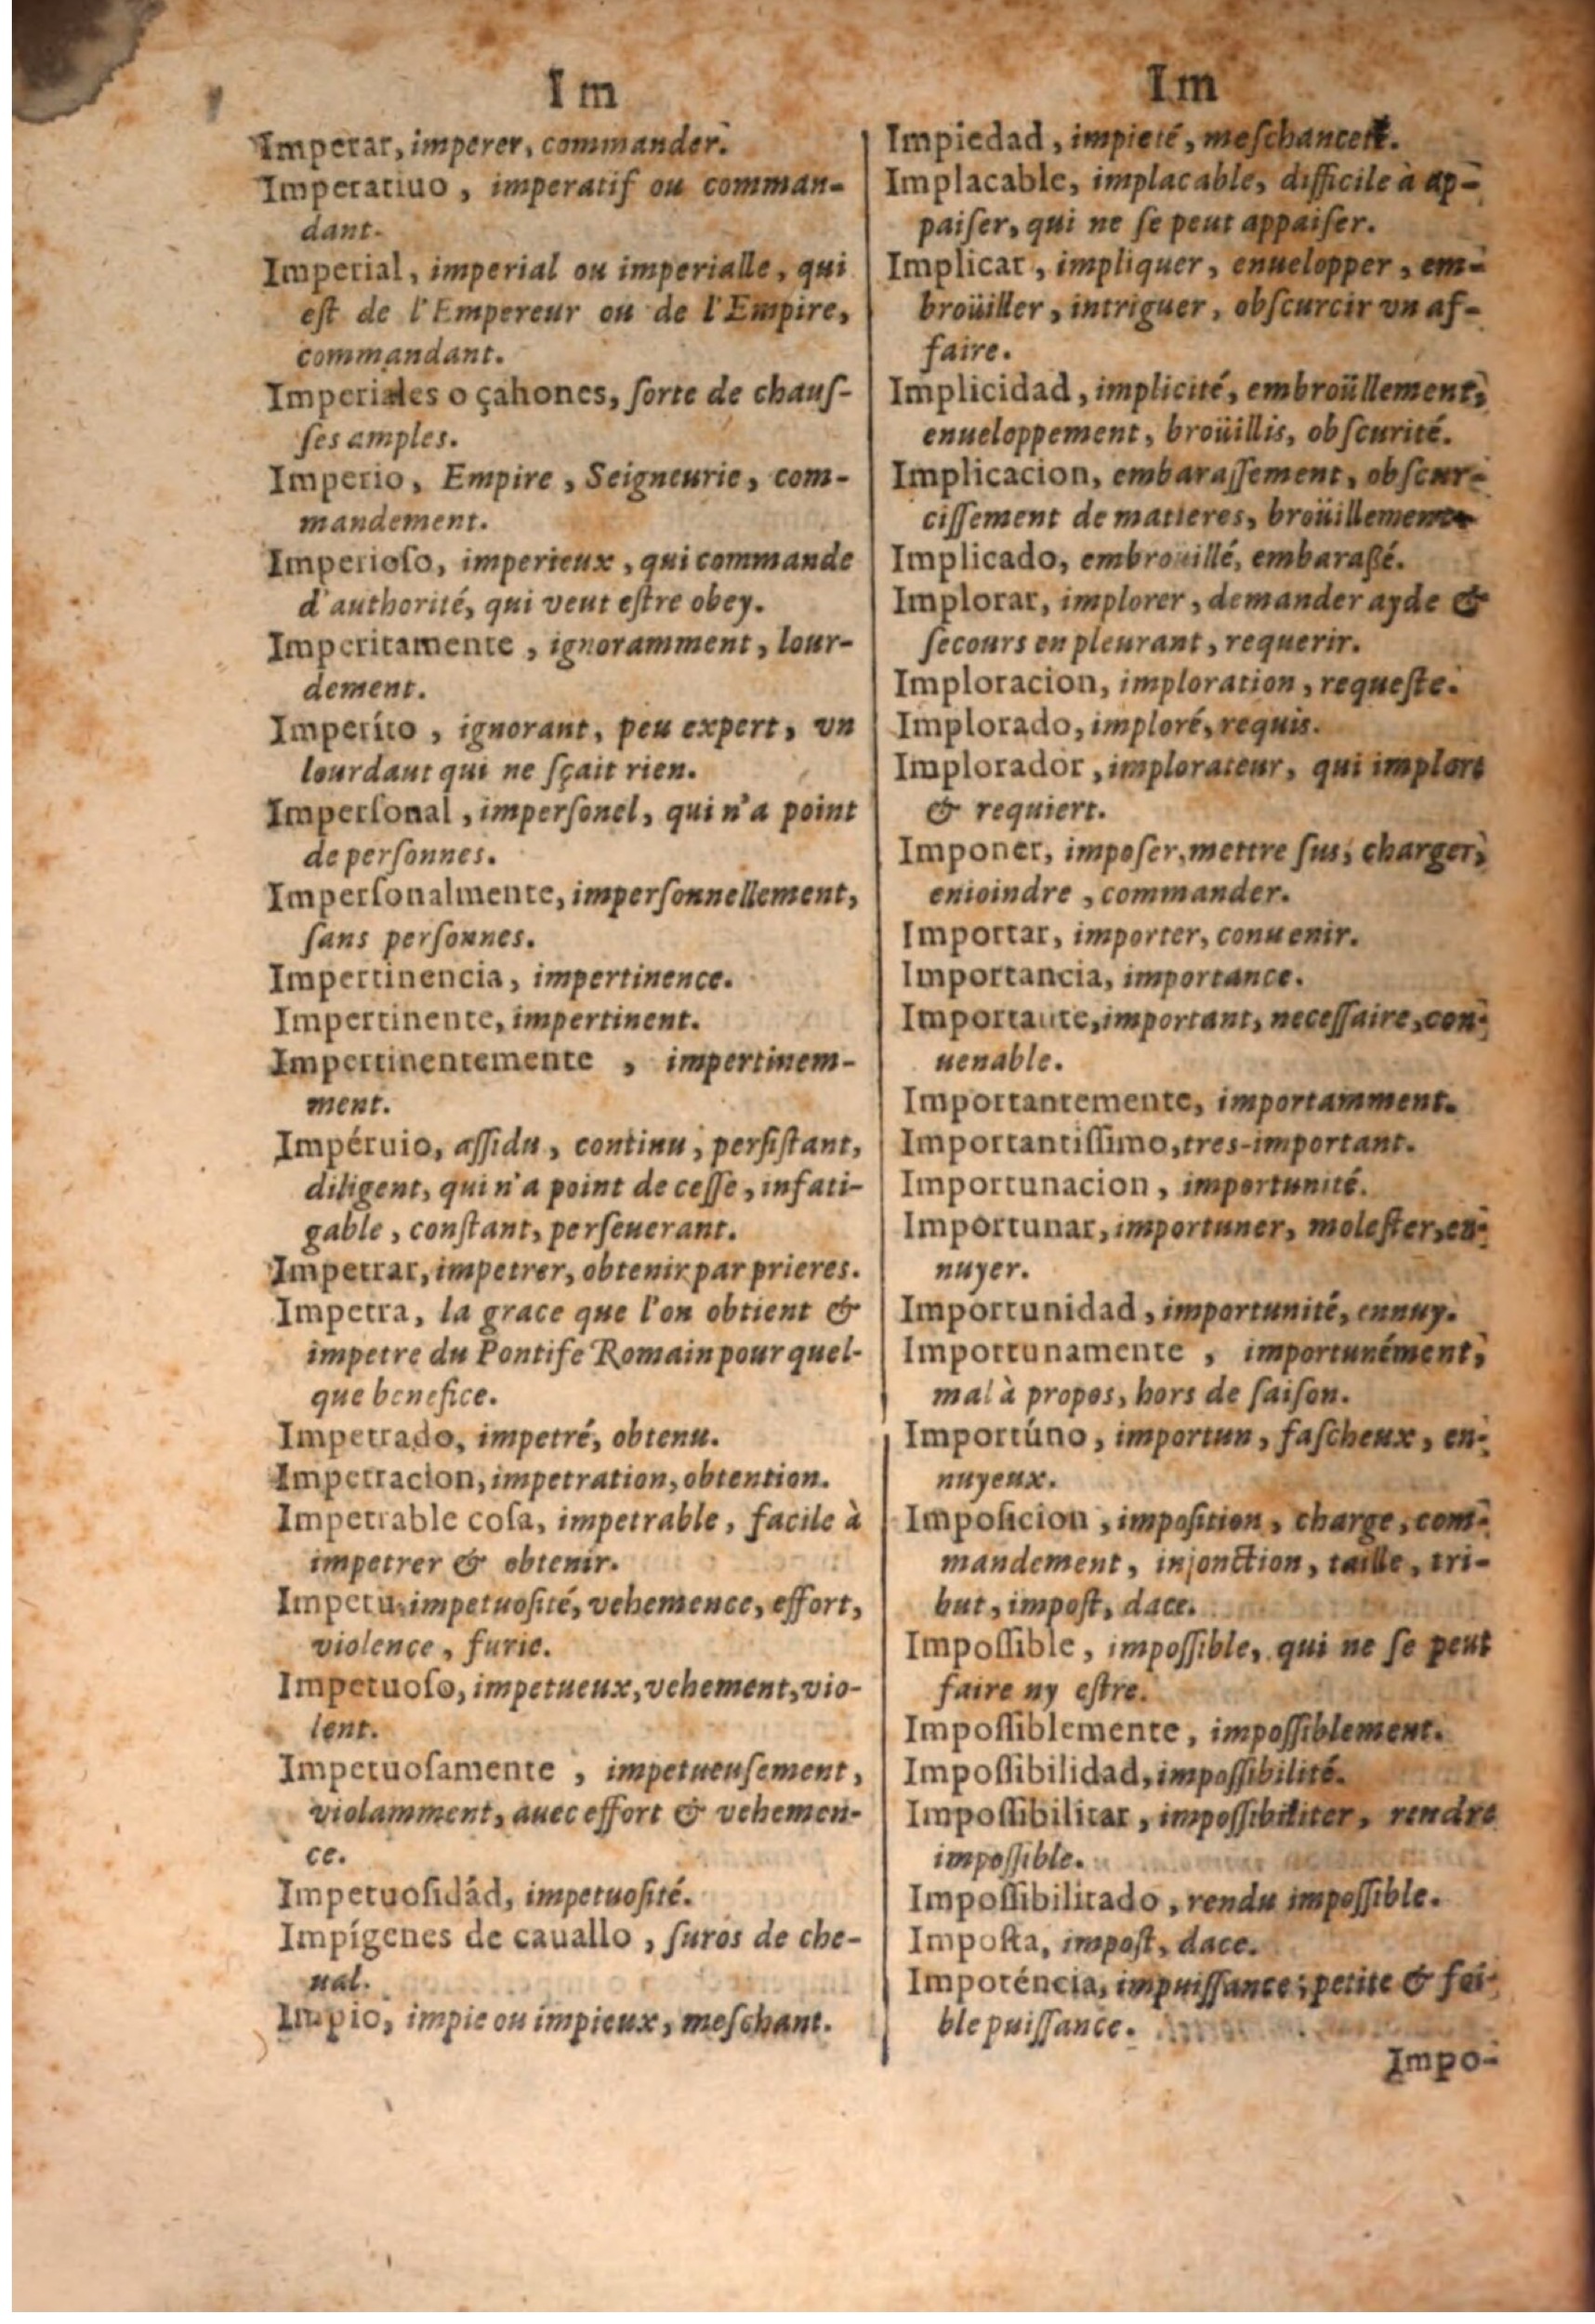 Im
Imperar, imperer, commander.
Imperatiuo, imperatif ou comman-
dant.
Imperial, imperial ou imperialle, qui
eſt de l'Empereur ou de l'Empire,
commandant.
Imperiales o çahones, ſorte de chauſ-
ſes amples.
Imperio, Empire, Seigneurie, com-
mandement.
Imperioſo, imperieux, qui commande
d'authorité, qui veut eſtre obey.
Imperitamente, ignoramment, lour-
dement.
Imperíto, ignorant, peu expert, vn
lourdaut qui ne ſçait rien.
Imperſonal, imperſonel, qui n'a point
de perſonnes.
Imperſonalmente, imperſonnellement,
ſans perſonnes.
Impertinencia, impertinence.
Impertinente, impertinent.
Impertinentemente, impertinem-
ment.
Impéruio, aſſidu, continu, perſiſtant,
diligent, qui n'a point de ceſſe, infati-
gable, conſtant, perſeuerant.
Impetrar, impetrer, obtenir par prieres.
Impetra, la grace que l'on obtient &
impetre du Pontife Romain pour quel-
que benefice.
Impetrado, impetré, obtenu.
Impetracion, impetration, obtention.
Impetrable coſa, impetrable, facile à
impetrer & obtenir.
Impetu, impetuoſité, vehemence, effort,
violence, furie.
Impetuoſo, impetueux, vehement, vio-
lent.
Impetuoſamente, impetueuſement,
violamment, auec effort & vehemen-
ce.
Impetuoſidâd, impetuoſité.
Impígenes de cauallo, ſuros de che-
ual.
Impio, impie ou impieux, meſchant.
Im
Impiedad, impieté, meſchanceté.
Implacable, implacable, difficile à ap-
paiſer, qui ne ſe peut appaiſer.
Implicar, impliquer, enuelopper, em-
broüiller, intriguer, obſcurcir vn af-
faire.
Implicidad, implicité, embroüllement,
enueloppement, broüillis, obſcurité.
Implicacion, embaraſſement, obſcur-
ciſſement de matieres, broüillement.
Implicado, embrouillé, embaraßé.
Implorar, implorer, demander ayde &
ſecours en pleurant, requerir.
Imploracion, imploration, requeſte.
Implorado, imploré, requis.
Implorador, implorateur, qui implore
& requiert.
Imponer, impoſer, mettre ſus, charger,
enioindre, commander.
Importar, importer, conuenir.
Importancia, importance.
Importante, important, neceſſaire, con-
uenable.
Importantemente, importamment.
Importantiſſimo, tres-important.
Importunacion, importunité.
Importunar, importuner, moleſter, en-
nuyer.
Importunidad, importunité, ennuy.
Importunamente, importunément,
mal à propos, hors de ſaiſon.
Importúno, importun, faſcheux, en-
nuyeux.
Impoſicion, impoſition, charge, com-
mandement, injonction, taille, tri-
but, impoſt, dace.
Impoſſible, impoſſible, qui ne ſe peut
faire ny eſtre.
Impoſſiblemente, impoſſiblement.
Impoſſibilidad, impoſſibilité.
Impoſſibilitar, impoſſibiliter, rendre
impoſſible.
Impoſſibilitado, rendu impoſſible.
Impoſta, impoſt, dace.
Impoténcia, impuiſſance, petite & foi-
ble puiſſance.
Impo-